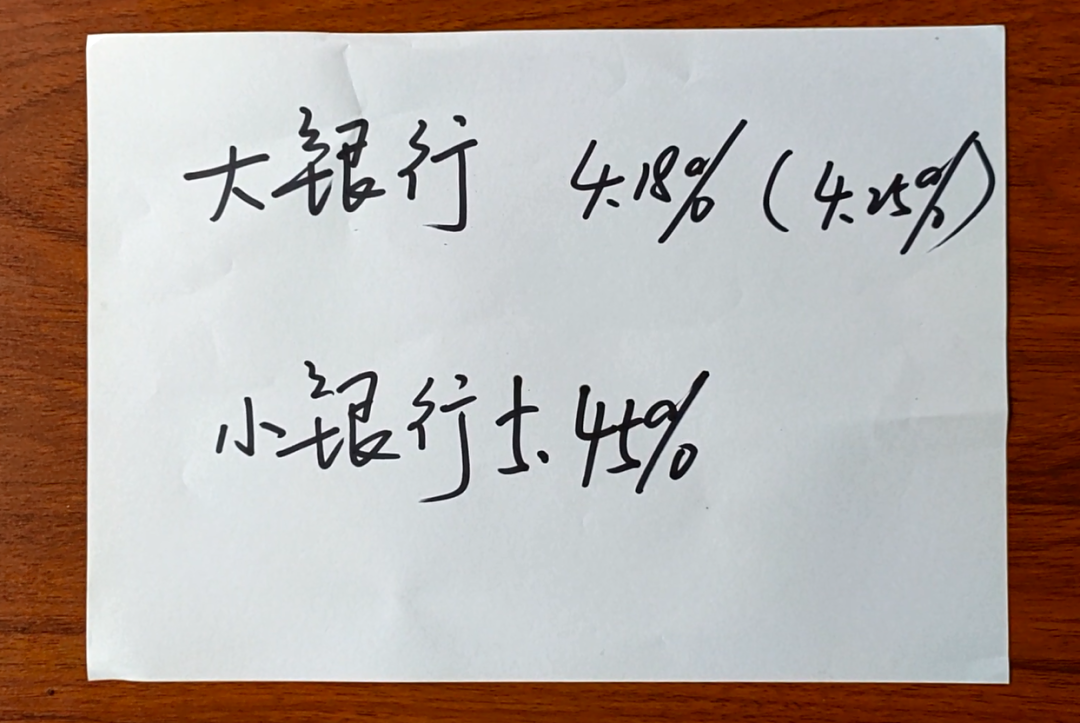 大银行 4.18%（4.25%）
小银行 5.45%